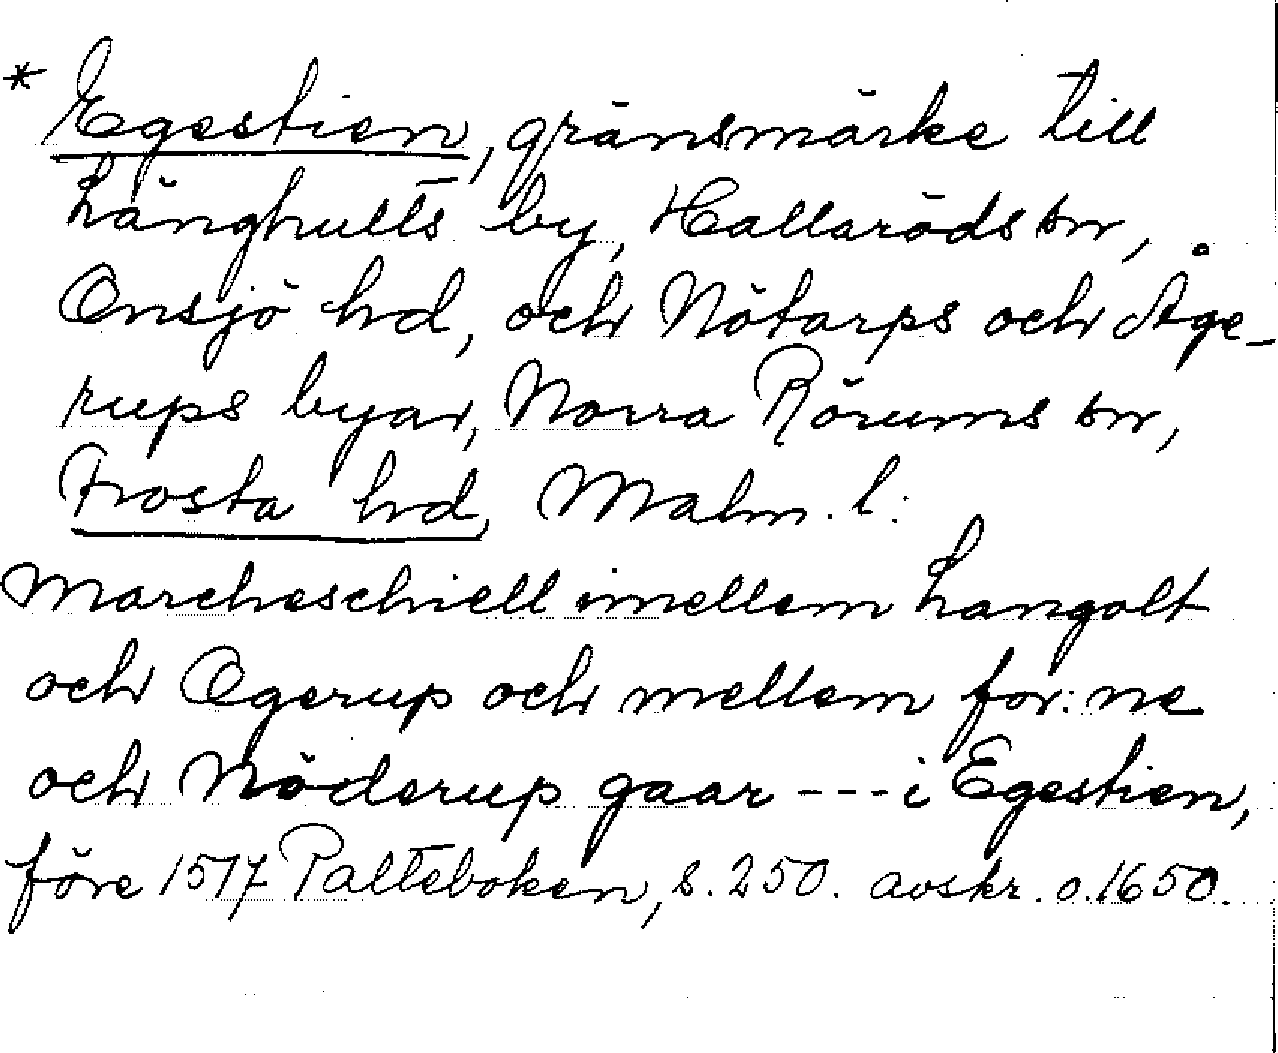 * Egestien, gränsmärke till
Långhults by, Hallaröds sn,
Onsjö hd, och Nötarps och Åge-
rups byar, Norra Rörums sn,
Frosta hd, Malm. l:
Marcheschiell imellem Langolt
och Ogerup och mellem for:ne
och Nöderup gaar --- i Egestien,
före 1517 Palteboken, s. 250. avskr. o. 1650.